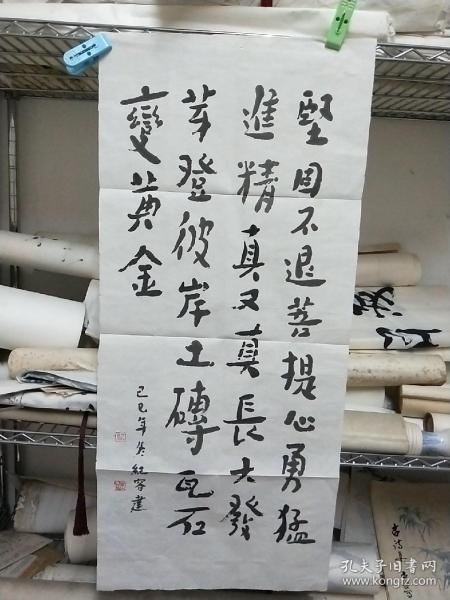 堅固不退菩提心勇猛
進精真又真長大發
芽登彼岸土磚瓦石
變黃金
己巳年
孔夫子旧书网
www.kongfz.com